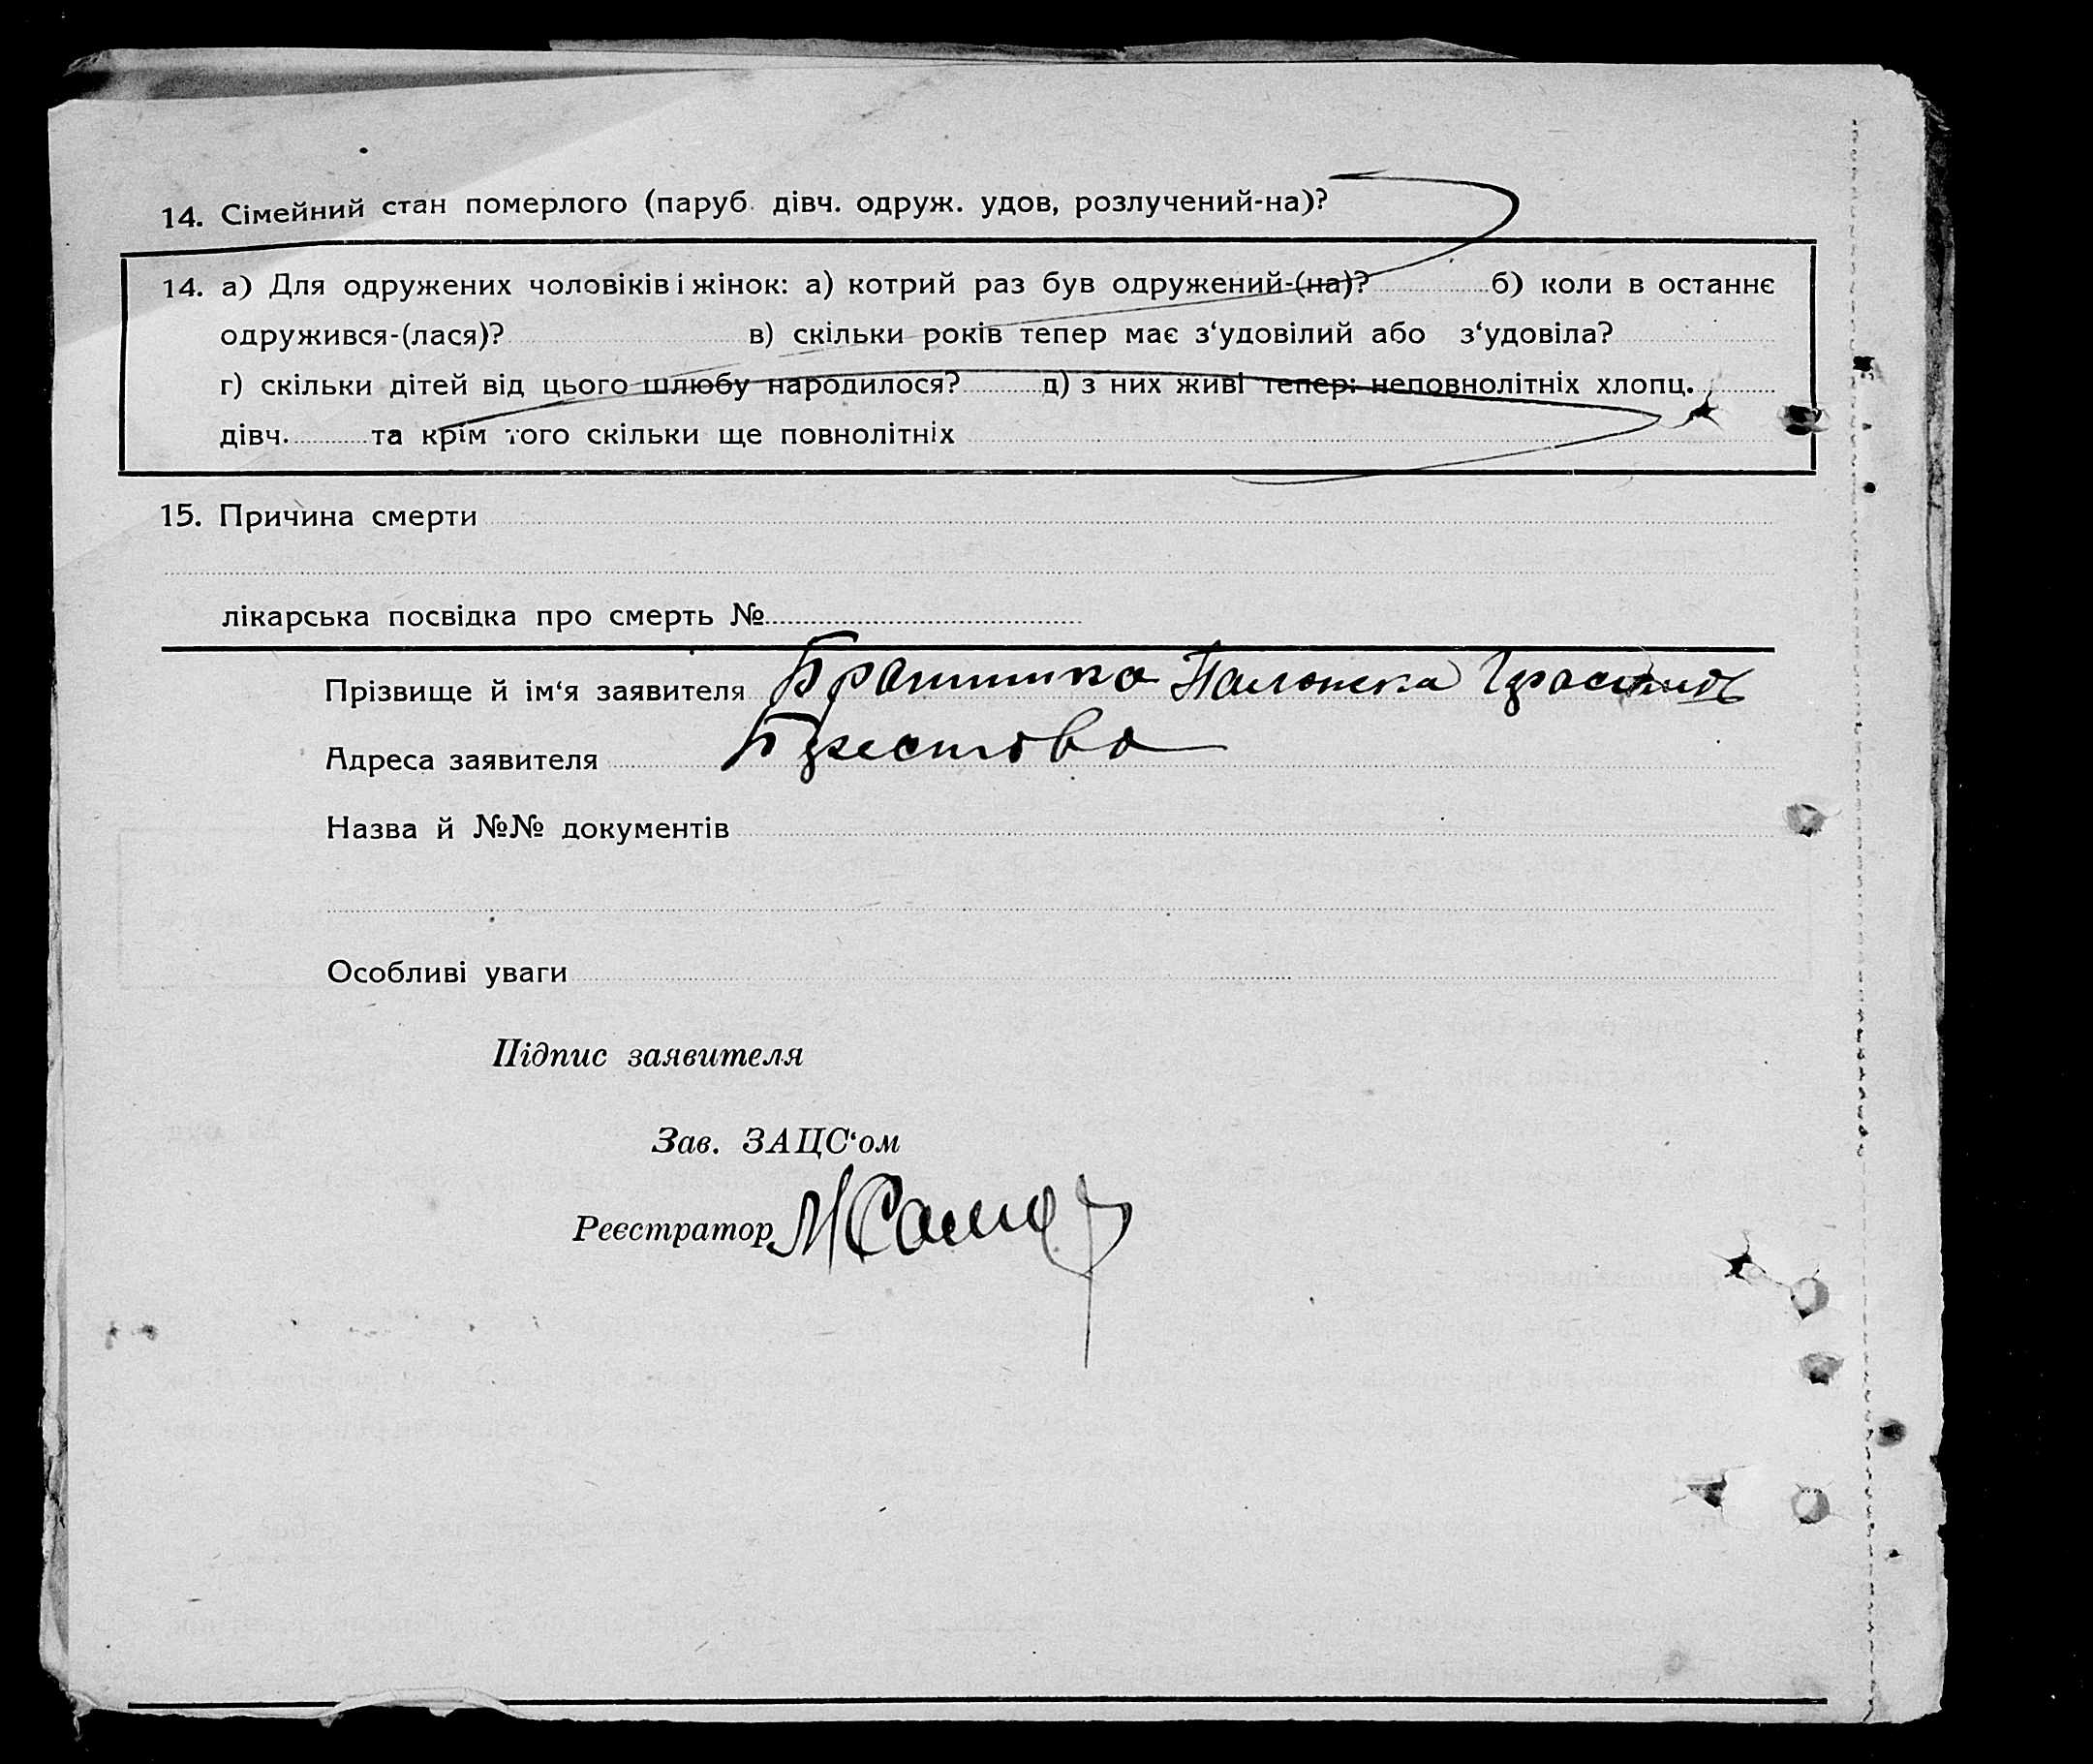 14. Сімейний стан померлого (паруб. дівч. одруж. удов, розлучений-на)?
14. а) Для одружених чоловіків і жінок: а) котрий раз був одружений-(на)? б) коли в останнє
одружився-(лася)? в) скільки років тепер має з‘удовілий або з‘удовіла?
г) скільки дітей від цього шлюбу народилося? д) з них живі тепер: неповнолітніх хлопц.
дівч. та крім того скільки ще повнолітніх
15. Причина смерти
лікарська посвідка про смерть №
Прізвище й ім‘я заявителя
Адреса заявителя
Назва й №№ документів
Особливі уваги
Підпис заявителя
Зав. ЗАЦС‘ом
Реєстратор